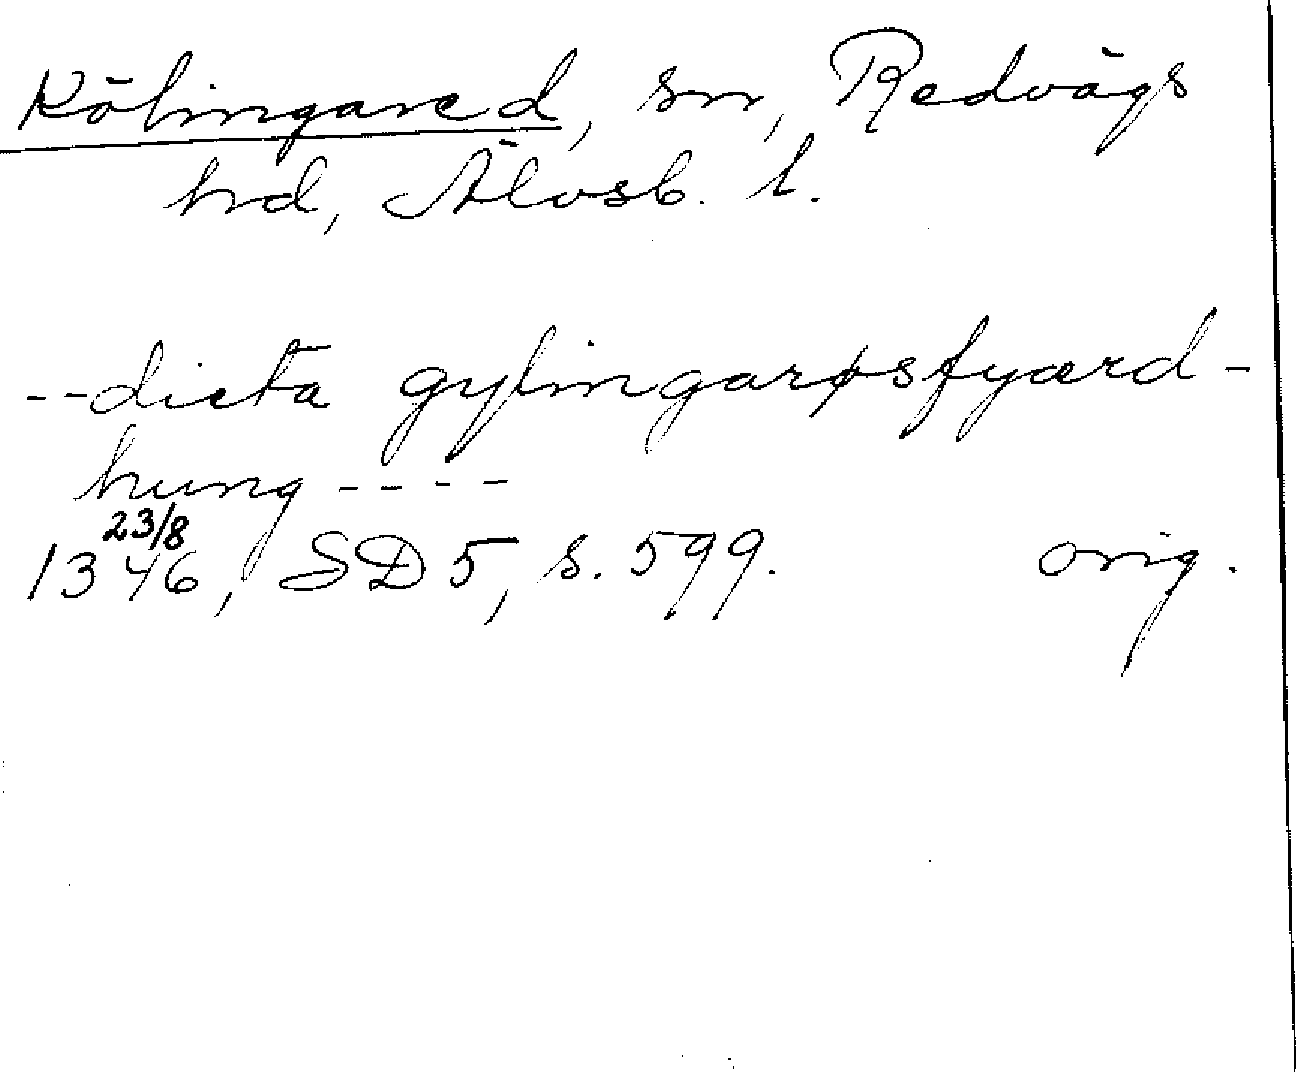 Kölingared, sn, Redvägs
hd, Älvsb. l.
--dicta gylingarøsfyærd-
hung----
23/8
1346, SD 5, s. 599. orig.